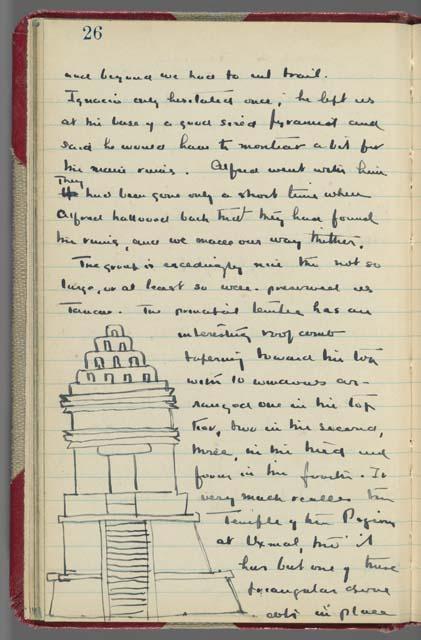 26
and beyond we had to cut trail.
Ignacio only hesitated once; he left us
at the base of a good sized pyramid and
said he would have to montear a bit for
the main ruins. Alfred went with him
They had been gone only a short time when
Alfred hallooed back that they had found
the ruins, and we made our way thither.
The group is exceedingly nice tho not so
large, or at least so well preserved as
Tancar. The principal temple has an
interesting roof comb
tapering toward the top
with 10 windows ar-
ranged one in the top
tier, two in the second,
three, in the third and
four in the fourth. It
very much recalls the
Temple of the Pigeons
at Uxmal, tho it
has but one of these
triangular
in place